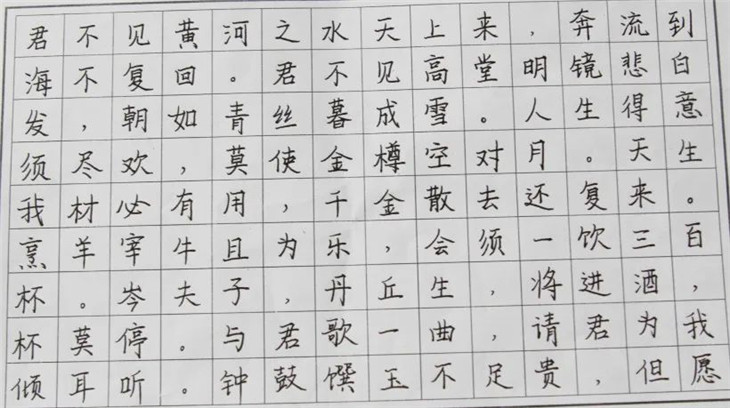 君不见黄河之水天上来，奔流到
海不复回。君不见高堂明镜悲白
发，朝如青丝暮成雪。人生得意
须尽欢，莫使金樽空对月。天生
我材必有用，千金散去还复来。
烹羊宰牛且为乐，会须一饮三百
杯。岑夫子，丹丘生，将进酒，
杯莫停。与君歌一曲，请君为我
倾耳听。钟鼓馔玉不足贵，但愿